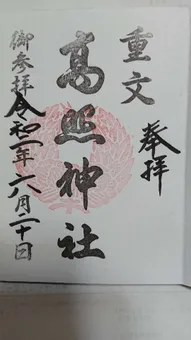 重文
奉拝
髙照神社
御参拝
令和二年六月二十日